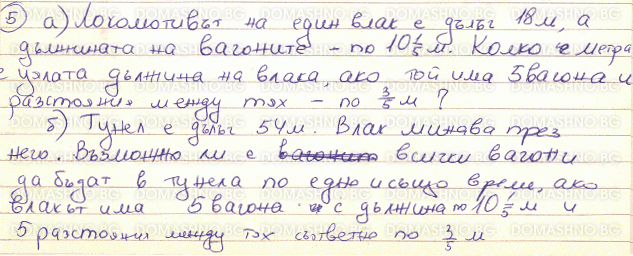 5 а) Локомотивът на един влак е дълъг 18 м, а
дължината на вагоните – по 10 1/5 м. Колко е метра
е цялата дължина на влака, ако той има 5 вагона и
разстояния между тях – по 3/5 м ?
б) Тунел е дълъг 54 м. Влак минава през
него. Възможно ли е всички вагони
да бъдат в тунела по едно и също време, ако
влакът има 5 вагона с дължина по 10 1/5 м и
5 разстояния между тях съответно по 3/5 м